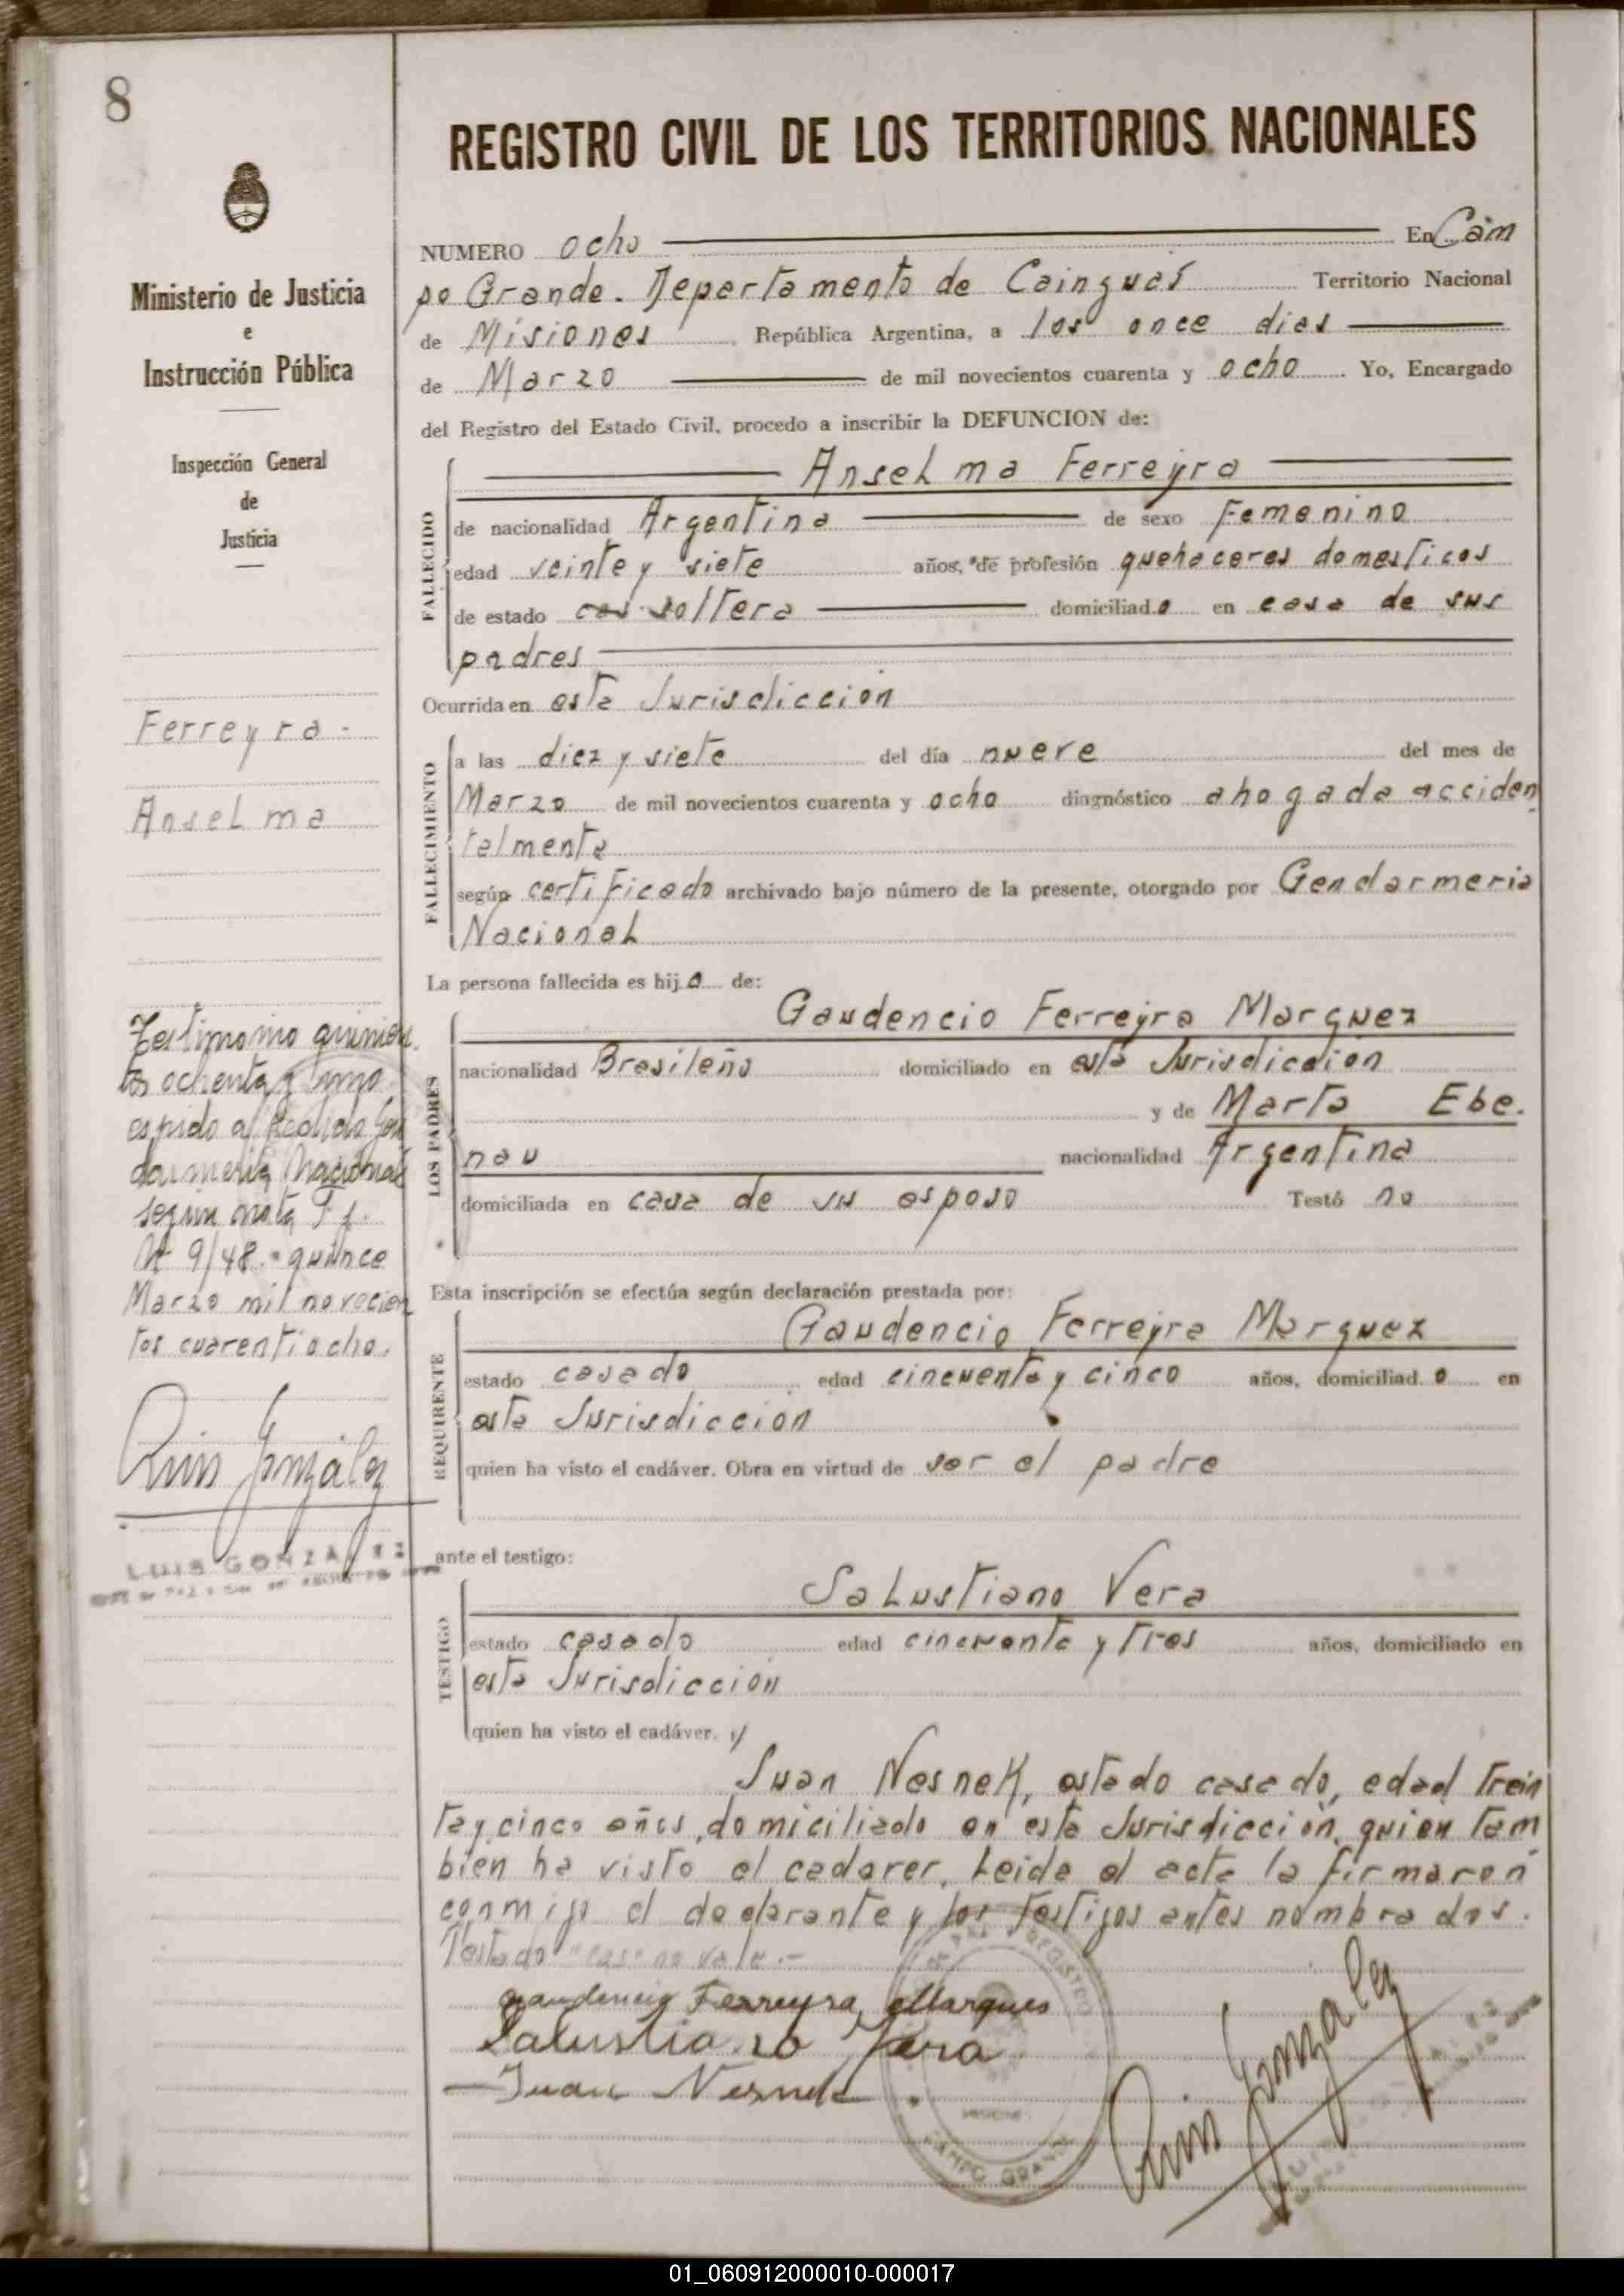 8
REGISTRO CIVIL DE LOS TERRITORIOS NACIONALES
Ministerio de Justicia
e
Instrucción Pública
Inspección General
de
Justicia
NUMERO ocho En Cam
po Grande. Departamento de Cainguás Territorio Nacional
de Misiones República Argentina, a los once dias
de Marzo de mil novecientos cuarenta y ocho Yo, Encargado
del Registro del Estado Civil, procedo a inscribir la DEFUNCION de:
FALLECIDO
Anselma Ferreyra
de nacionalidad Argentina de sexo Femenino
edad veinte y siete años, de profesión quehaceres domesticos
de estado cas soltera domiciliada en casa de sus
padres
Ocurrida en esta Jurisdicción
Ferreyra.
Anselma
FALLECIMIENTO
a las diez y siete del día nueve del mes de
Marzo de mil novecientos cuarenta y ocho diagnóstico ahogada acciden
talmente
según certificado archivado bajo número de la presente, otorgado por Gendarmeria
Nacional
La persona fallecida es hija de:
LOS PADRES
Gaudencio Ferreyra Marquez
nacionalidad Brasileño domiciliado en esta Jurisdicción
y de Marta Ebe.
nau nacionalidad Argentina
domiciliada en casa de su esposo Testó no
Testimonio quinien
tos ochenta y uno
espido a pedido Gen
darmeria Nacional
segun nota
Nº 9/48.- quince
Marzo mil novecien
tos cuarentiocho.
Luis González
LUIS GONZALEZ
Esta inscripción se efectúa según declaración prestada por:
REQUIRENTE
Gaudencio Ferreyra Marquez
estado casado edad cincuenta y cinco años, domiciliado en
esta Jurisdicción
quien ha visto el cadáver. Obra en virtud de ser el padre
ante el testigo:
TESTIGO
Salustiano Vera
estado casado edad cincuenta y tres años, domiciliado en
esta Jurisdicción
quien ha visto el cadáver. y
Juan Nesnek, estado casado, edad trein
ta y cinco años, domiciliado en esta Jurisdicción, quien tam
bien ha visto el cadaver. Leida el acta la firmaron
conmigo el declarante y los testigos antes nombrados.
Testado "cas" no vale.-
Gaudencio Ferreyra Marques
Salustiano Vera
Juan Nesnek
Luis González
REGISTRO
MISIONES
CAMPO GRANDE
01_060912000010-000017